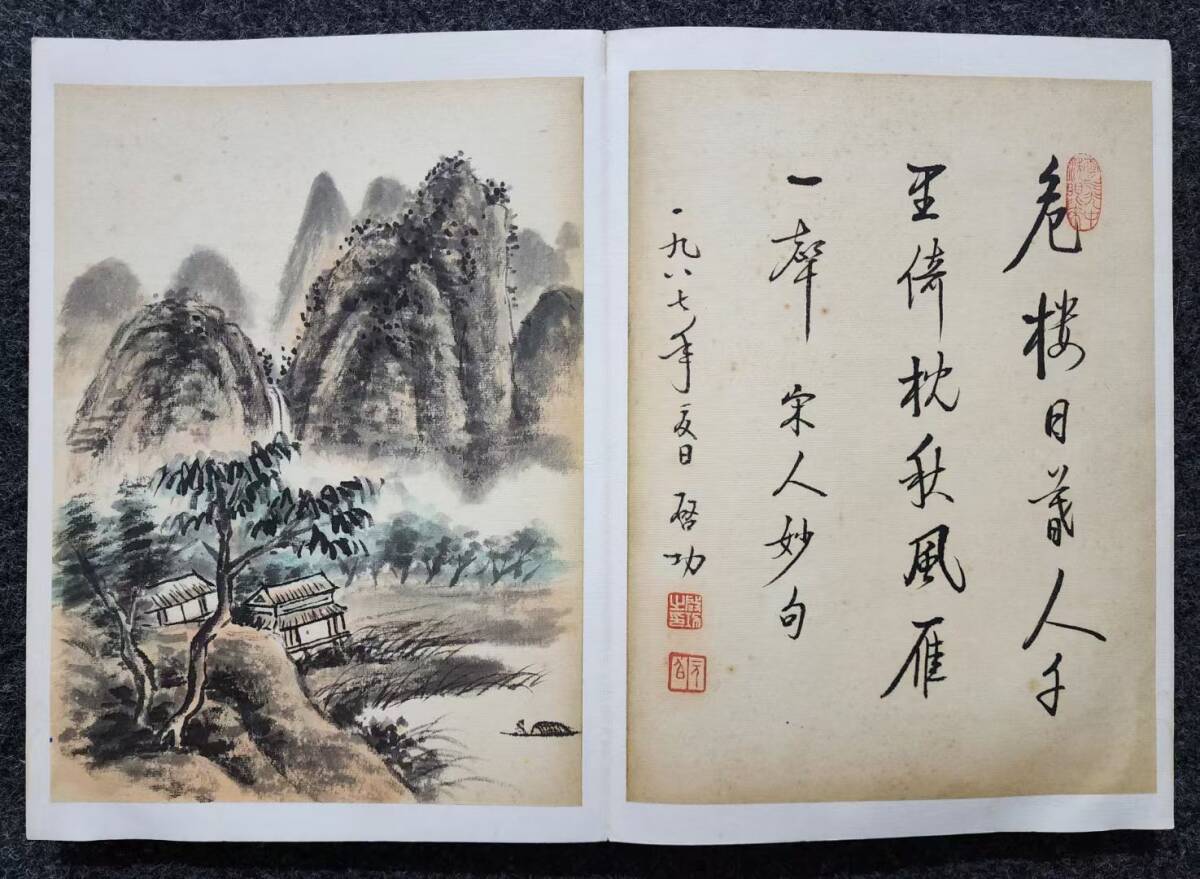 危楼日暮人千
里倚枕秋風雁
一聲 宋人妙句
一九八七年夏日 啓功
啓功之印
元白